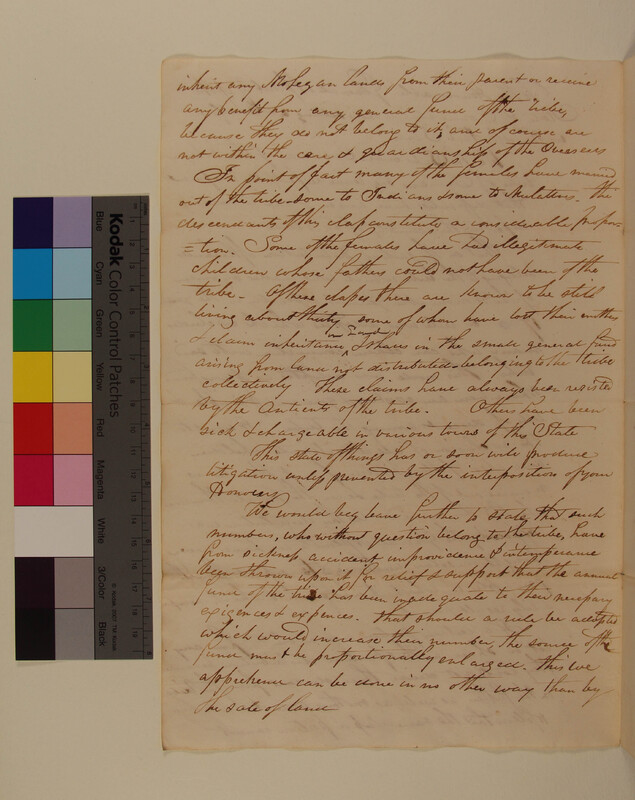 inherit any Mohegan lands from their parent or receive
any benefit from any general fund of the Tribe,
because they do not belong to it, and of course are
not within the care & guardianship of the Overseers
In point of fact many of the females have married
out of the tribe some to Indians & some to Mulattoes. The
descendants of this class constitute a considerable propor-
=tion. Some of the females have had illegitimate
children whose fathers could not have been of the
tribe. Of these classes there are known to be still
living about thirty some of whom have lost their mothers
& claim inheritance & shares in the small general fund
arising from land not distributed & belonging to the tribe
collectively These claims have always been resisted
by the Antients of the tribe. Others have been
sick & chargeable in various towns of this State
This state of things has or soon will produce
litigation unless prevented by the interposition of your
Honours
We would beg leave further to state, that such
numbers, who without question belong to the tribe, have
from sickness accident improvidence & intemperance
been thrown upon it for relief & support that the annual
fund of the tribe has been inadequate to their necessary
exigences & expences. that should a rule be adopted
which would increase their number, the source of the
fund must be proportionally enlarged. this we
apprehend can be done in no other way than by
the sale of land
Kodak Color Control Patches
Blue
Cyan
Green
Yellow
Red
Magenta
White
3/Color
Black